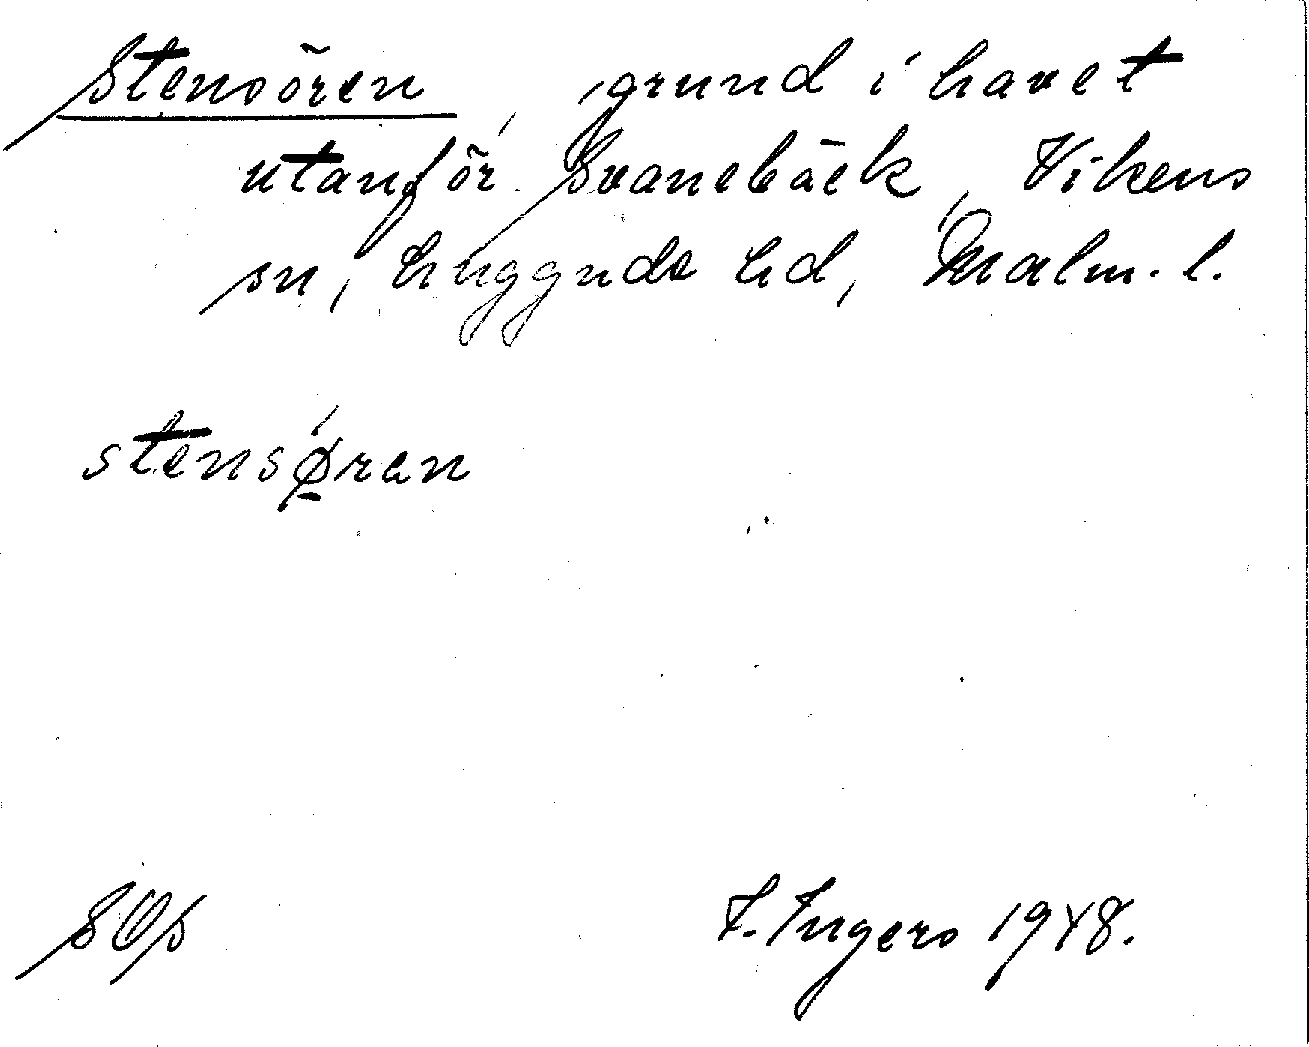 Stensören, grund i havet
utanför Svanebäck, Vikens
sn, Luggude hd, Malm. l.
stensǿ̱ran
I. Ingers 1948.